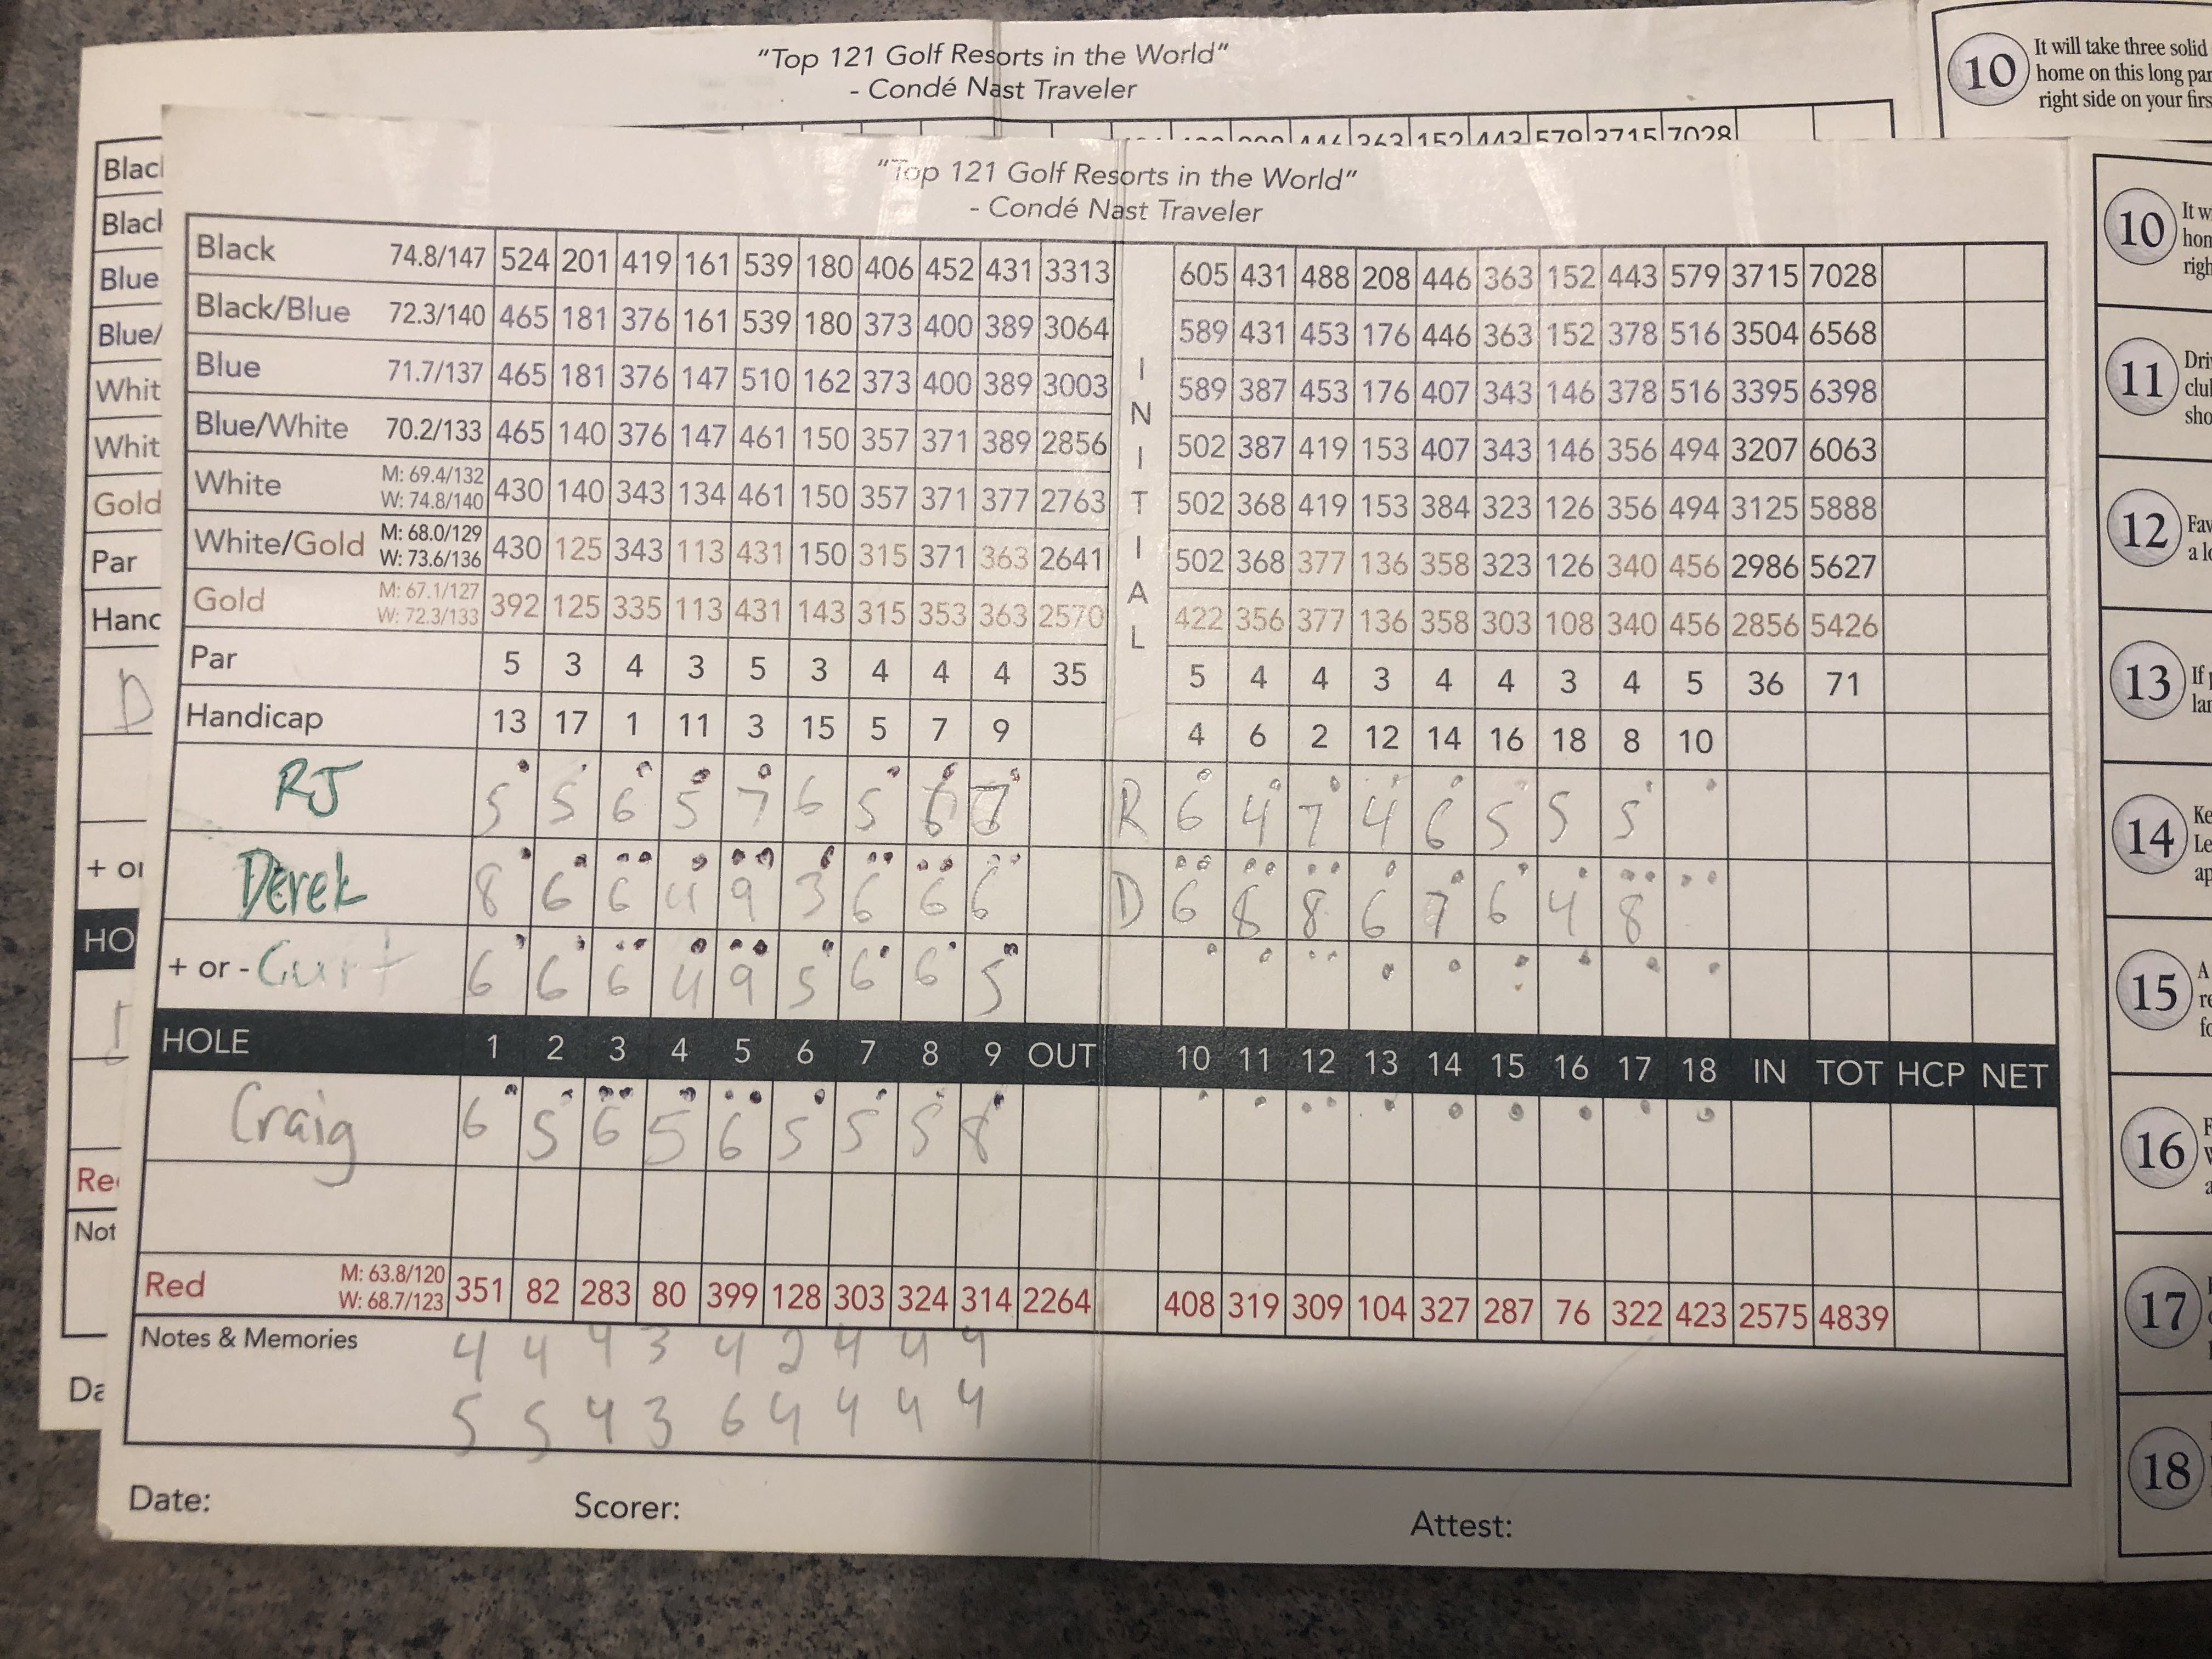 "Top 121 Golf Resorts in the World"
- Condé Nast Traveler
10 It will take three solid
home on this long par
right side on your firs
446 363 152 443 579 3715 7028
Blac
Blac
Blue
Blue/
Whit
Whit
Gold
Par
Hanc
D
+ or
HO
Re
Not
Da
"Top 121 Golf Resorts in the World"
- Condé Nast Traveler
Black 74.8/147 524 201 419 161 539 180 406 452 431 3313 605 431 488 208 446 363 152 443 579 3715 7028
Black/Blue 72.3/140 465 181 376 161 539 180 373 400 389 3064 589 431 453 176 446 363 152 378 516 3504 6568
Blue 71.7/137 465 181 376 147 510 162 373 400 389 3003 589 387 453 176 407 343 146 378 516 3395 6398
Blue/White 70.2/133 465 140 376 147 461 150 357 371 389 2856 502 387 419 153 407 343 146 356 494 3207 6063
White M: 69.4/132 W: 74.8/140 430 140 343 134 461 150 357 371 377 2763 502 368 419 153 384 323 126 356 494 3125 5888
White/Gold M: 68.0/129 W: 73.6/136 430 125 343 113 431 150 315 371 363 2641 502 368 377 136 358 323 126 340 456 2986 5627
Gold M: 67.1/127 W: 72.3/133 392 125 335 113 431 143 315 353 363 2570 422 356 377 136 358 303 108 340 456 2856 5426
INITIAL
Par 5 3 4 3 5 3 4 4 4 35 5 4 4 3 4 4 3 4 5 36 71
Handicap 13 17 1 11 3 15 5 7 9 4 6 2 12 14 16 18 8 10
RJ 5 5 6 5 7 6 5 6 R 6 4 7 4 6 5 5 5
Derek 8 6 6 4 9 3 6 6 6 D 6 8 8 6 7 6 4 8
+ or - Curt 6 6 6 4 9 5 6 6 5
HOLE 1 2 3 4 5 6 7 8 9 OUT 10 11 12 13 14 15 16 17 18 IN TOT HCP NET
Craig 6 5 6 5 6 5 5 5 8
Red M: 63.8/120 W: 68.7/123 351 82 283 80 399 128 303 324 314 2264 408 319 309 104 327 287 76 322 423 2575 4839
Notes & Memories 4 4 4 3 4 2 4 4 4
5 5 4 3 6 4 4 4 4
Date: Scorer: Attest:
10 It w
hon
righ
11 Dri
club
sho
12 Fav
a lo
13 If
lar
14 Ke
Le
ap
15 A
re
fo
16
17
18